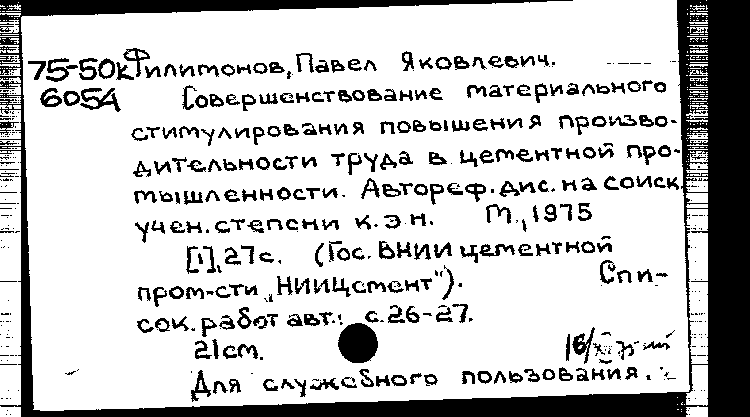 75-50к Филимонов, Павел Яковлевич.
6054 Совершенствование материального
стимулирования повышения произво-
дительности труда в цементной про-
мышленности. Автореф. дис. на соиск.
учен. степени к.э.н. М., 1975
[1], 27 с. (Гос. ВНИИ цементной
пром-сти "НИИЦемент").
Спи-
сок. работ авт.: с. 26-27.
21 см.
Для служебного пользования.